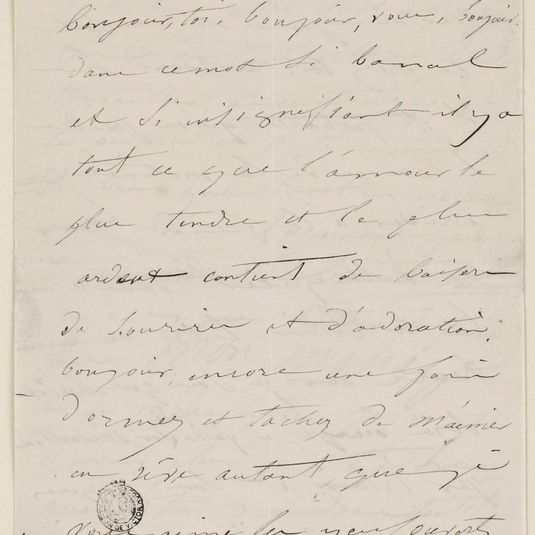 bonjour, toi, bonjour, vous, bonjour.
dans ce mot si banal
et si insignifiant il y a
tout ce que l'amour le
plus tendre et le plus
ardent contient de baisers
de sourires et d'adoration.
bonjour, encore une fois
Dormez et tachez de m'aimer
en rêve autant que je
vous aime les yeux ouverts